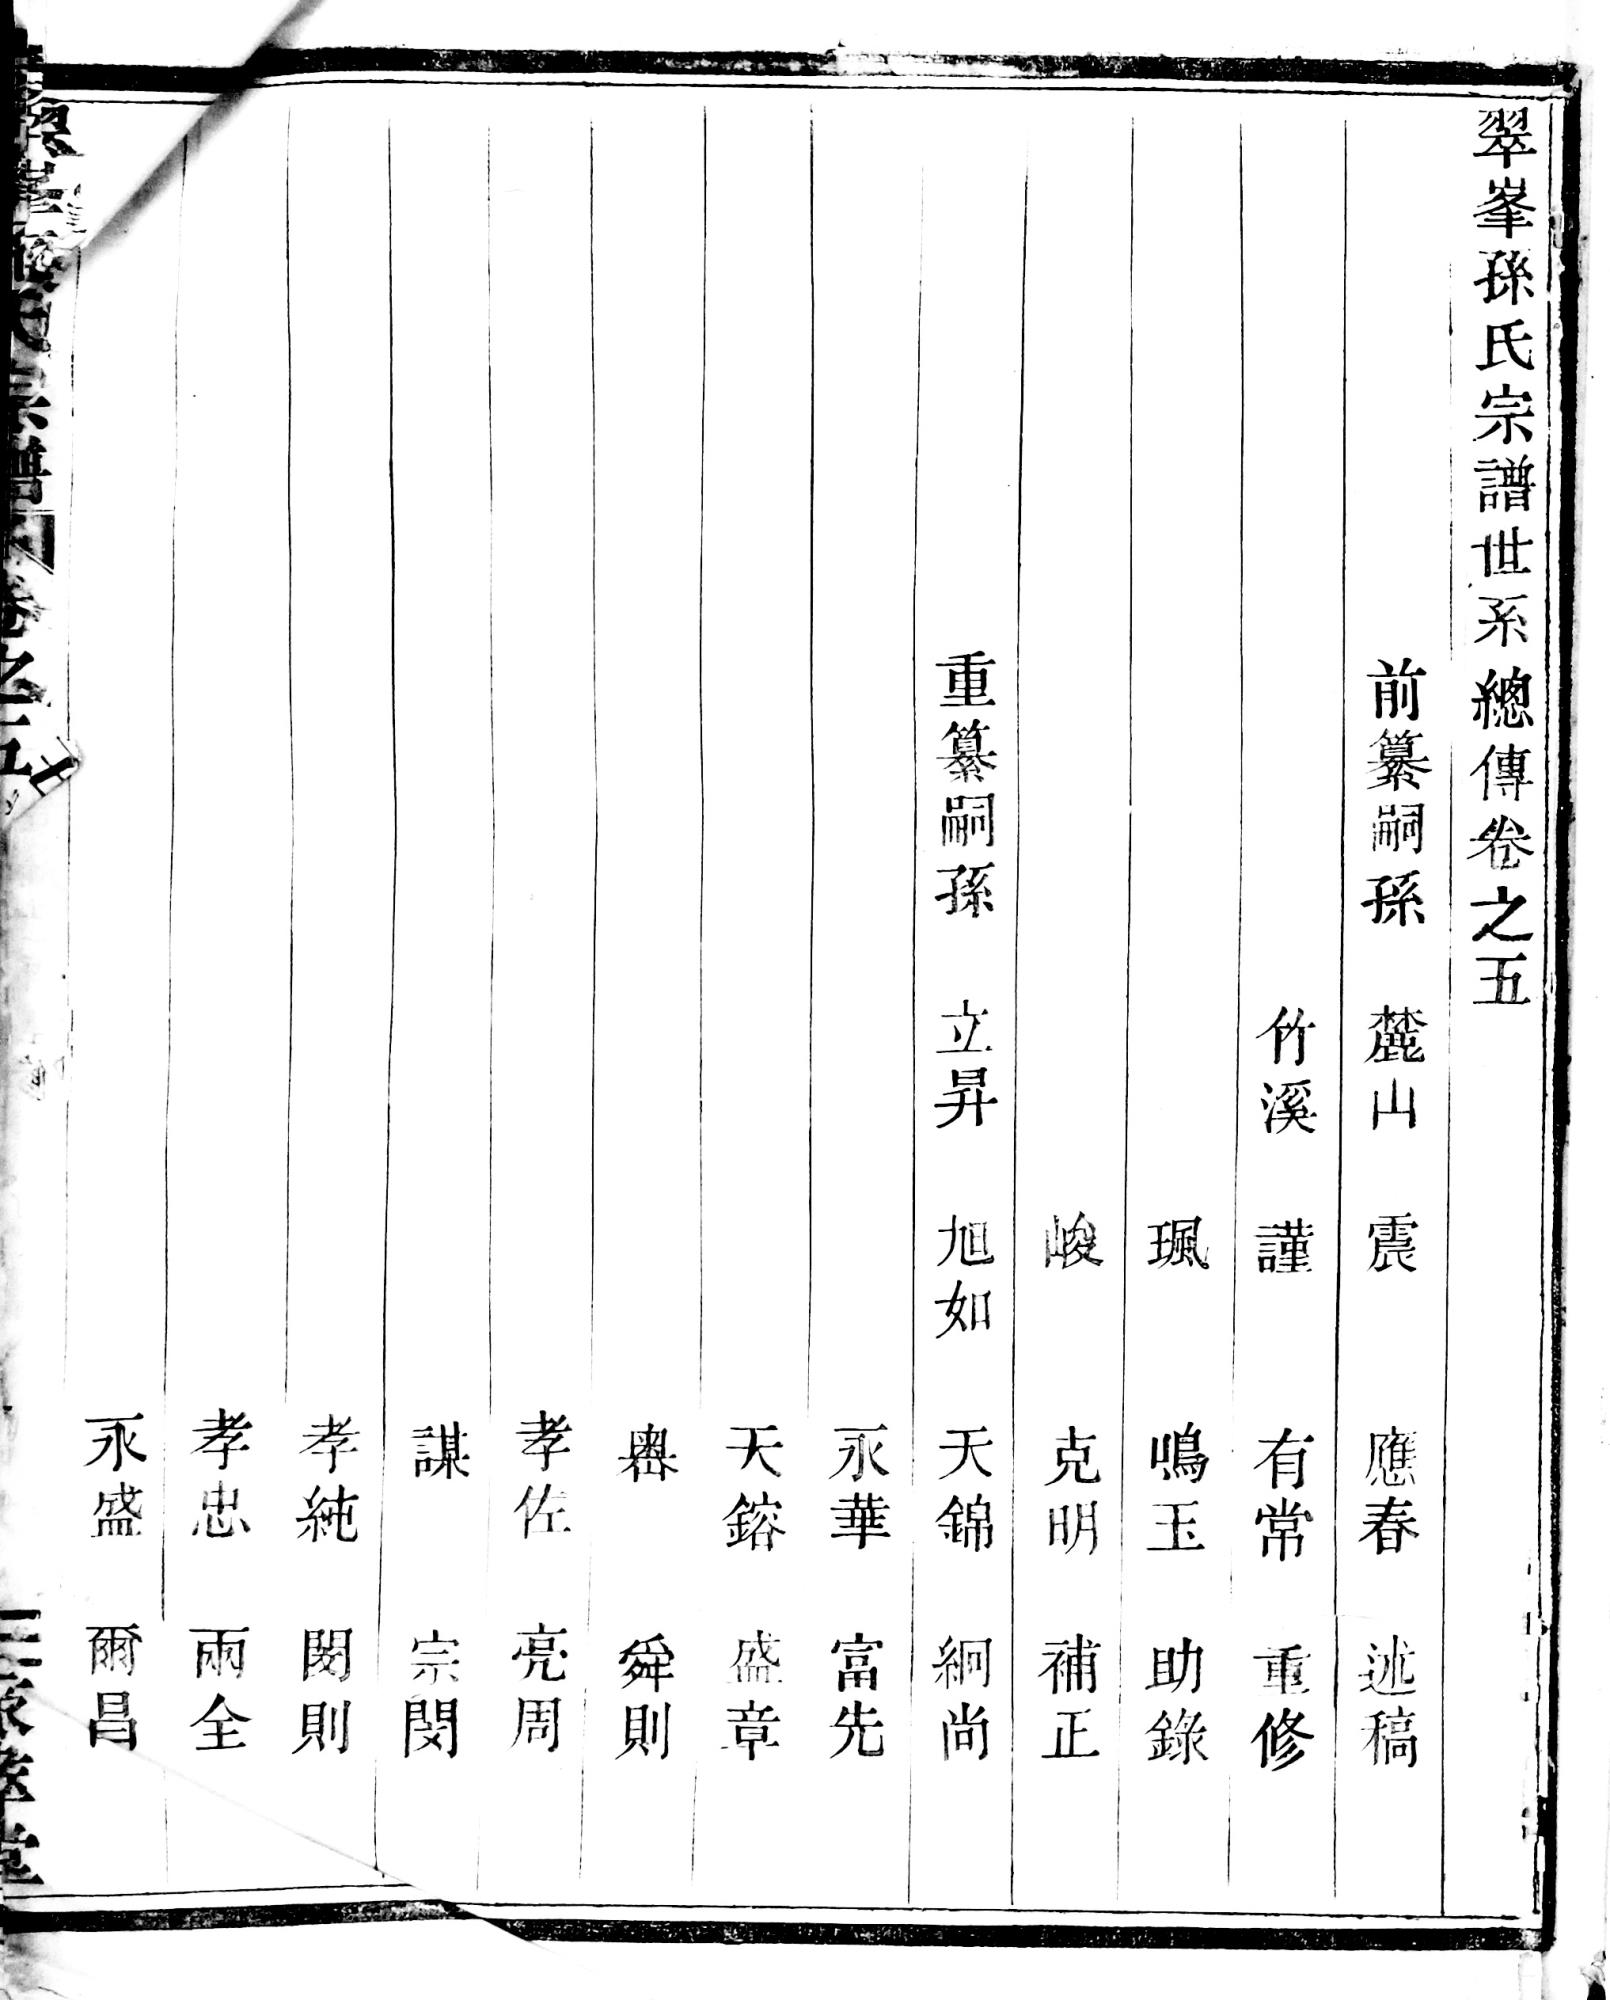 翠峯孫氏宗譜世系總傳卷之五
前纂嗣孫 麓山 震 應春 述稿
竹溪 謹 有常 重修
珮 鳴玉 助錄
峻 克明 補正
重纂嗣孫 立昇 旭如 天錦 絅尚
永華 富先
天鎔 盛章
粵 舜則
孝佐 亮周
謀 宗閔
孝純 閔則
孝忠 兩全
永盛 爾昌
宗譜 卷之五